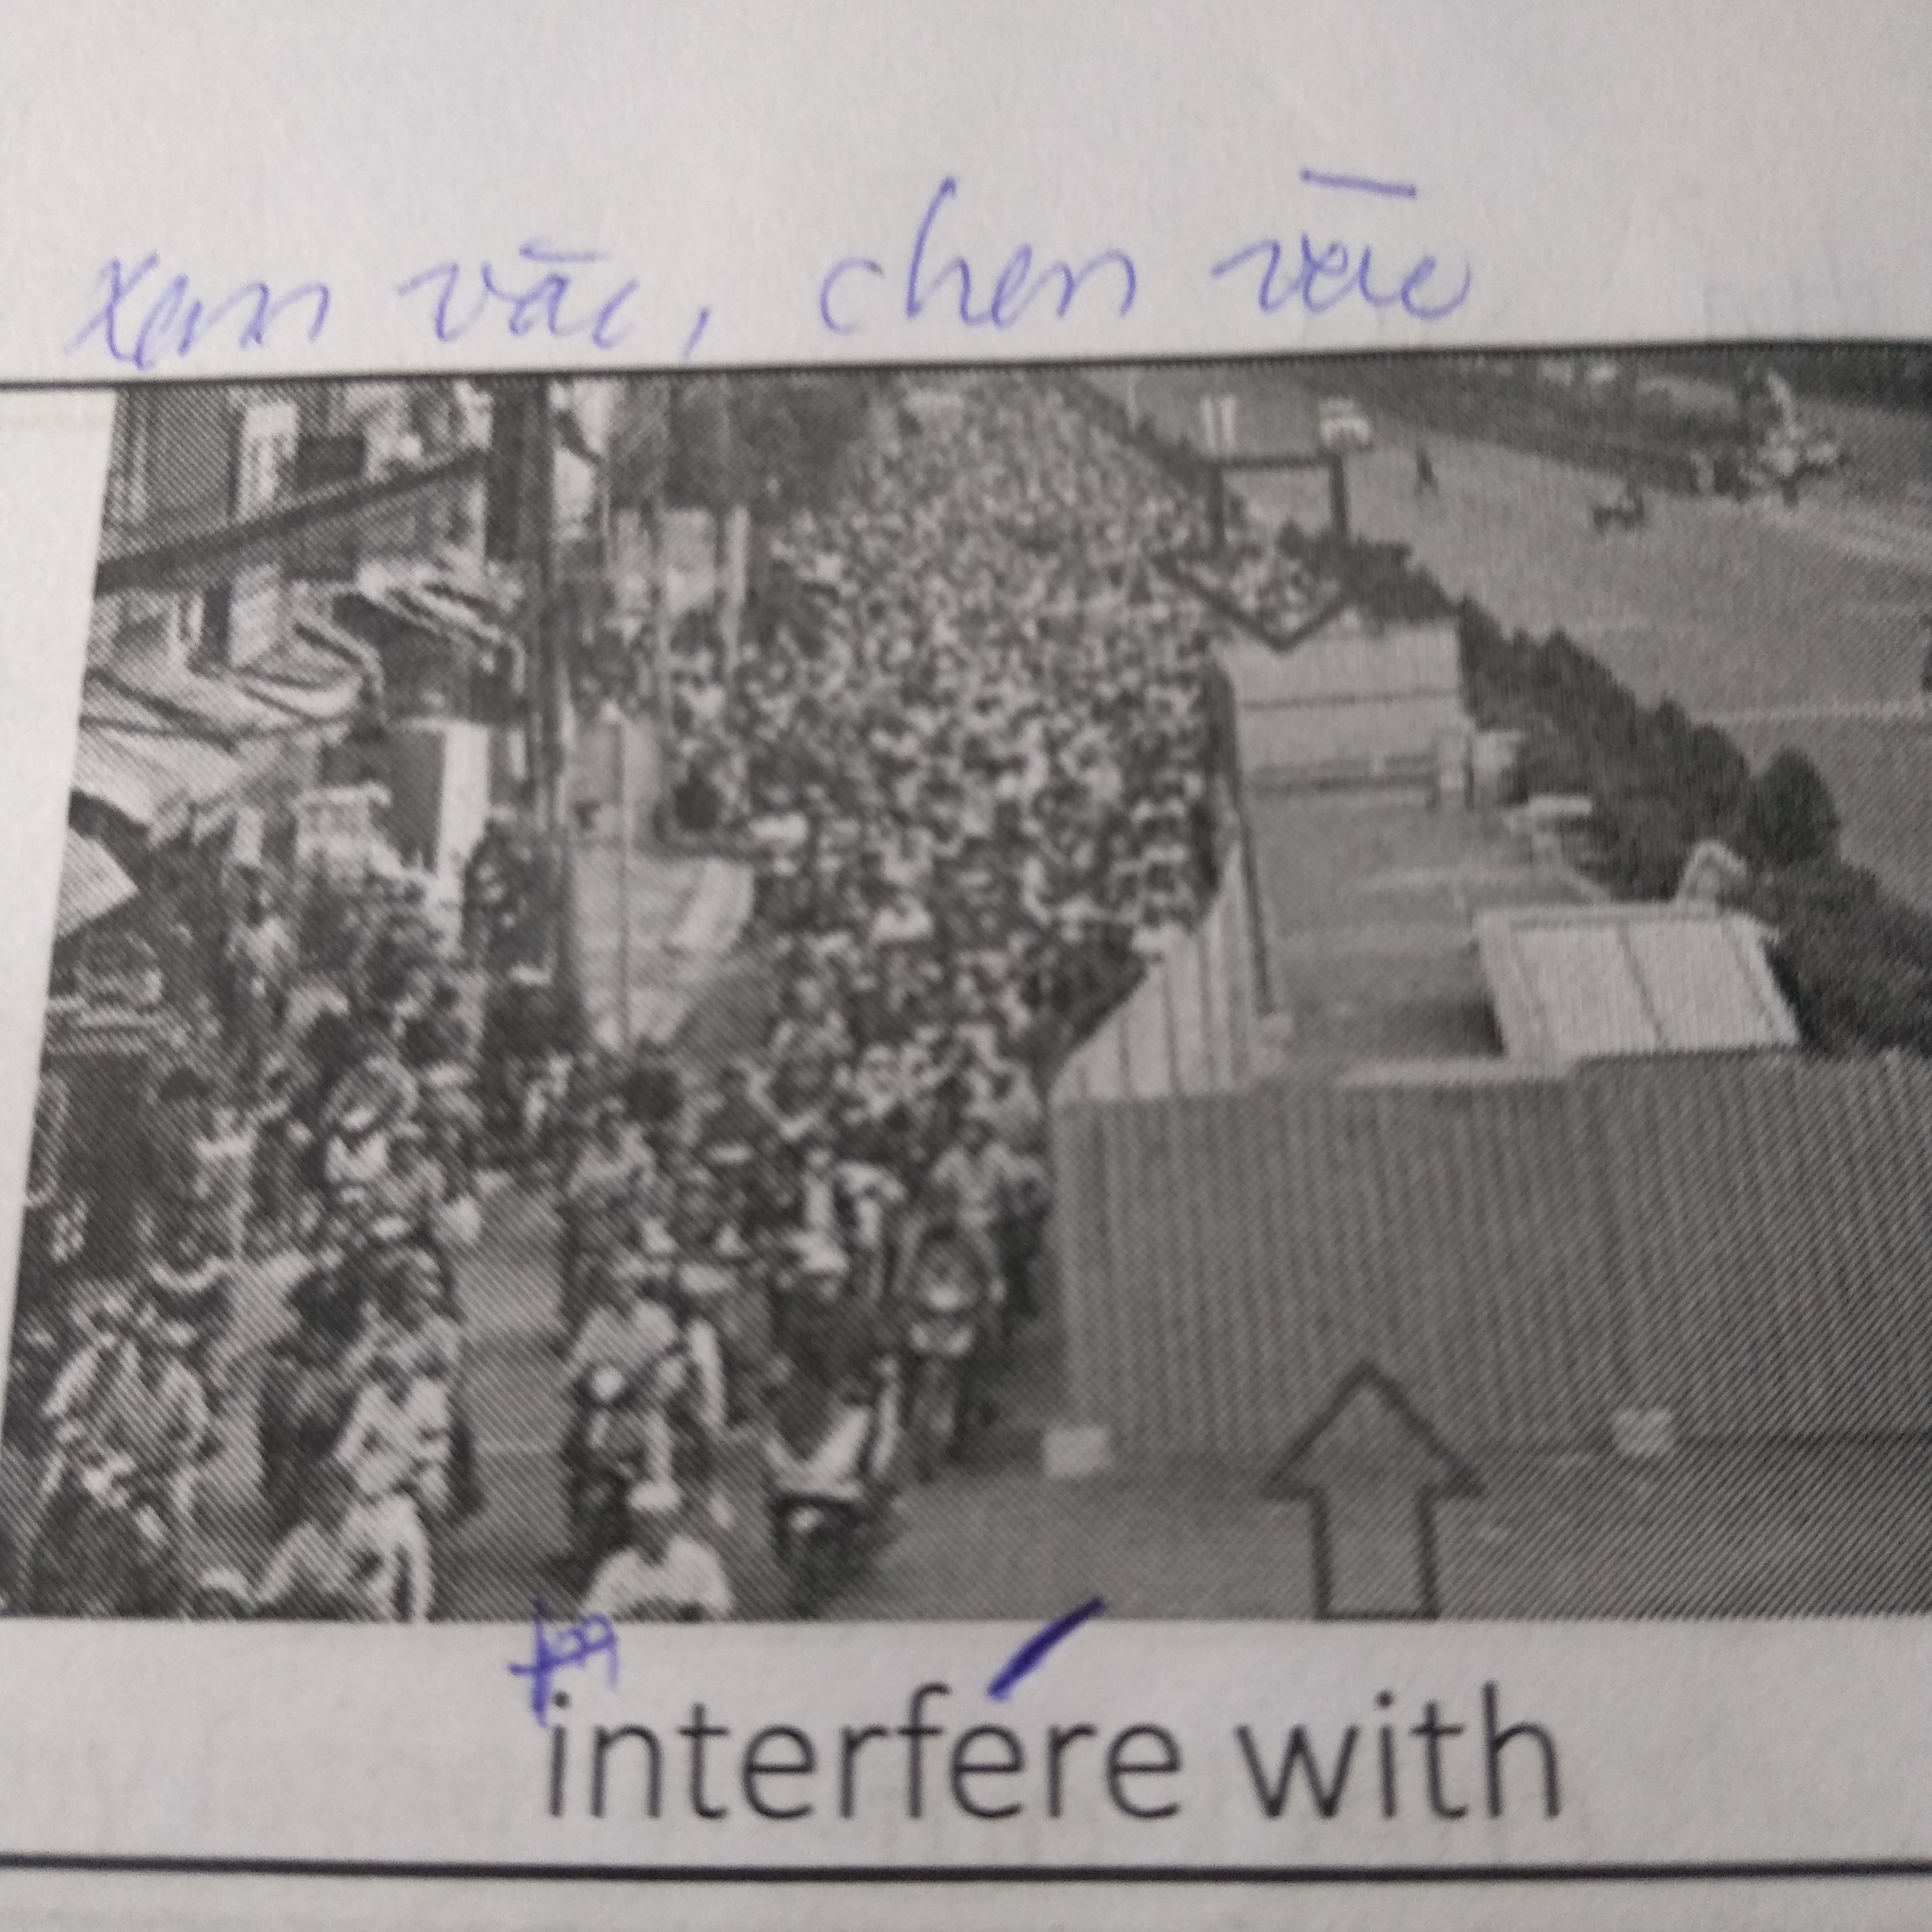 xen vào, chen vào
interfere with